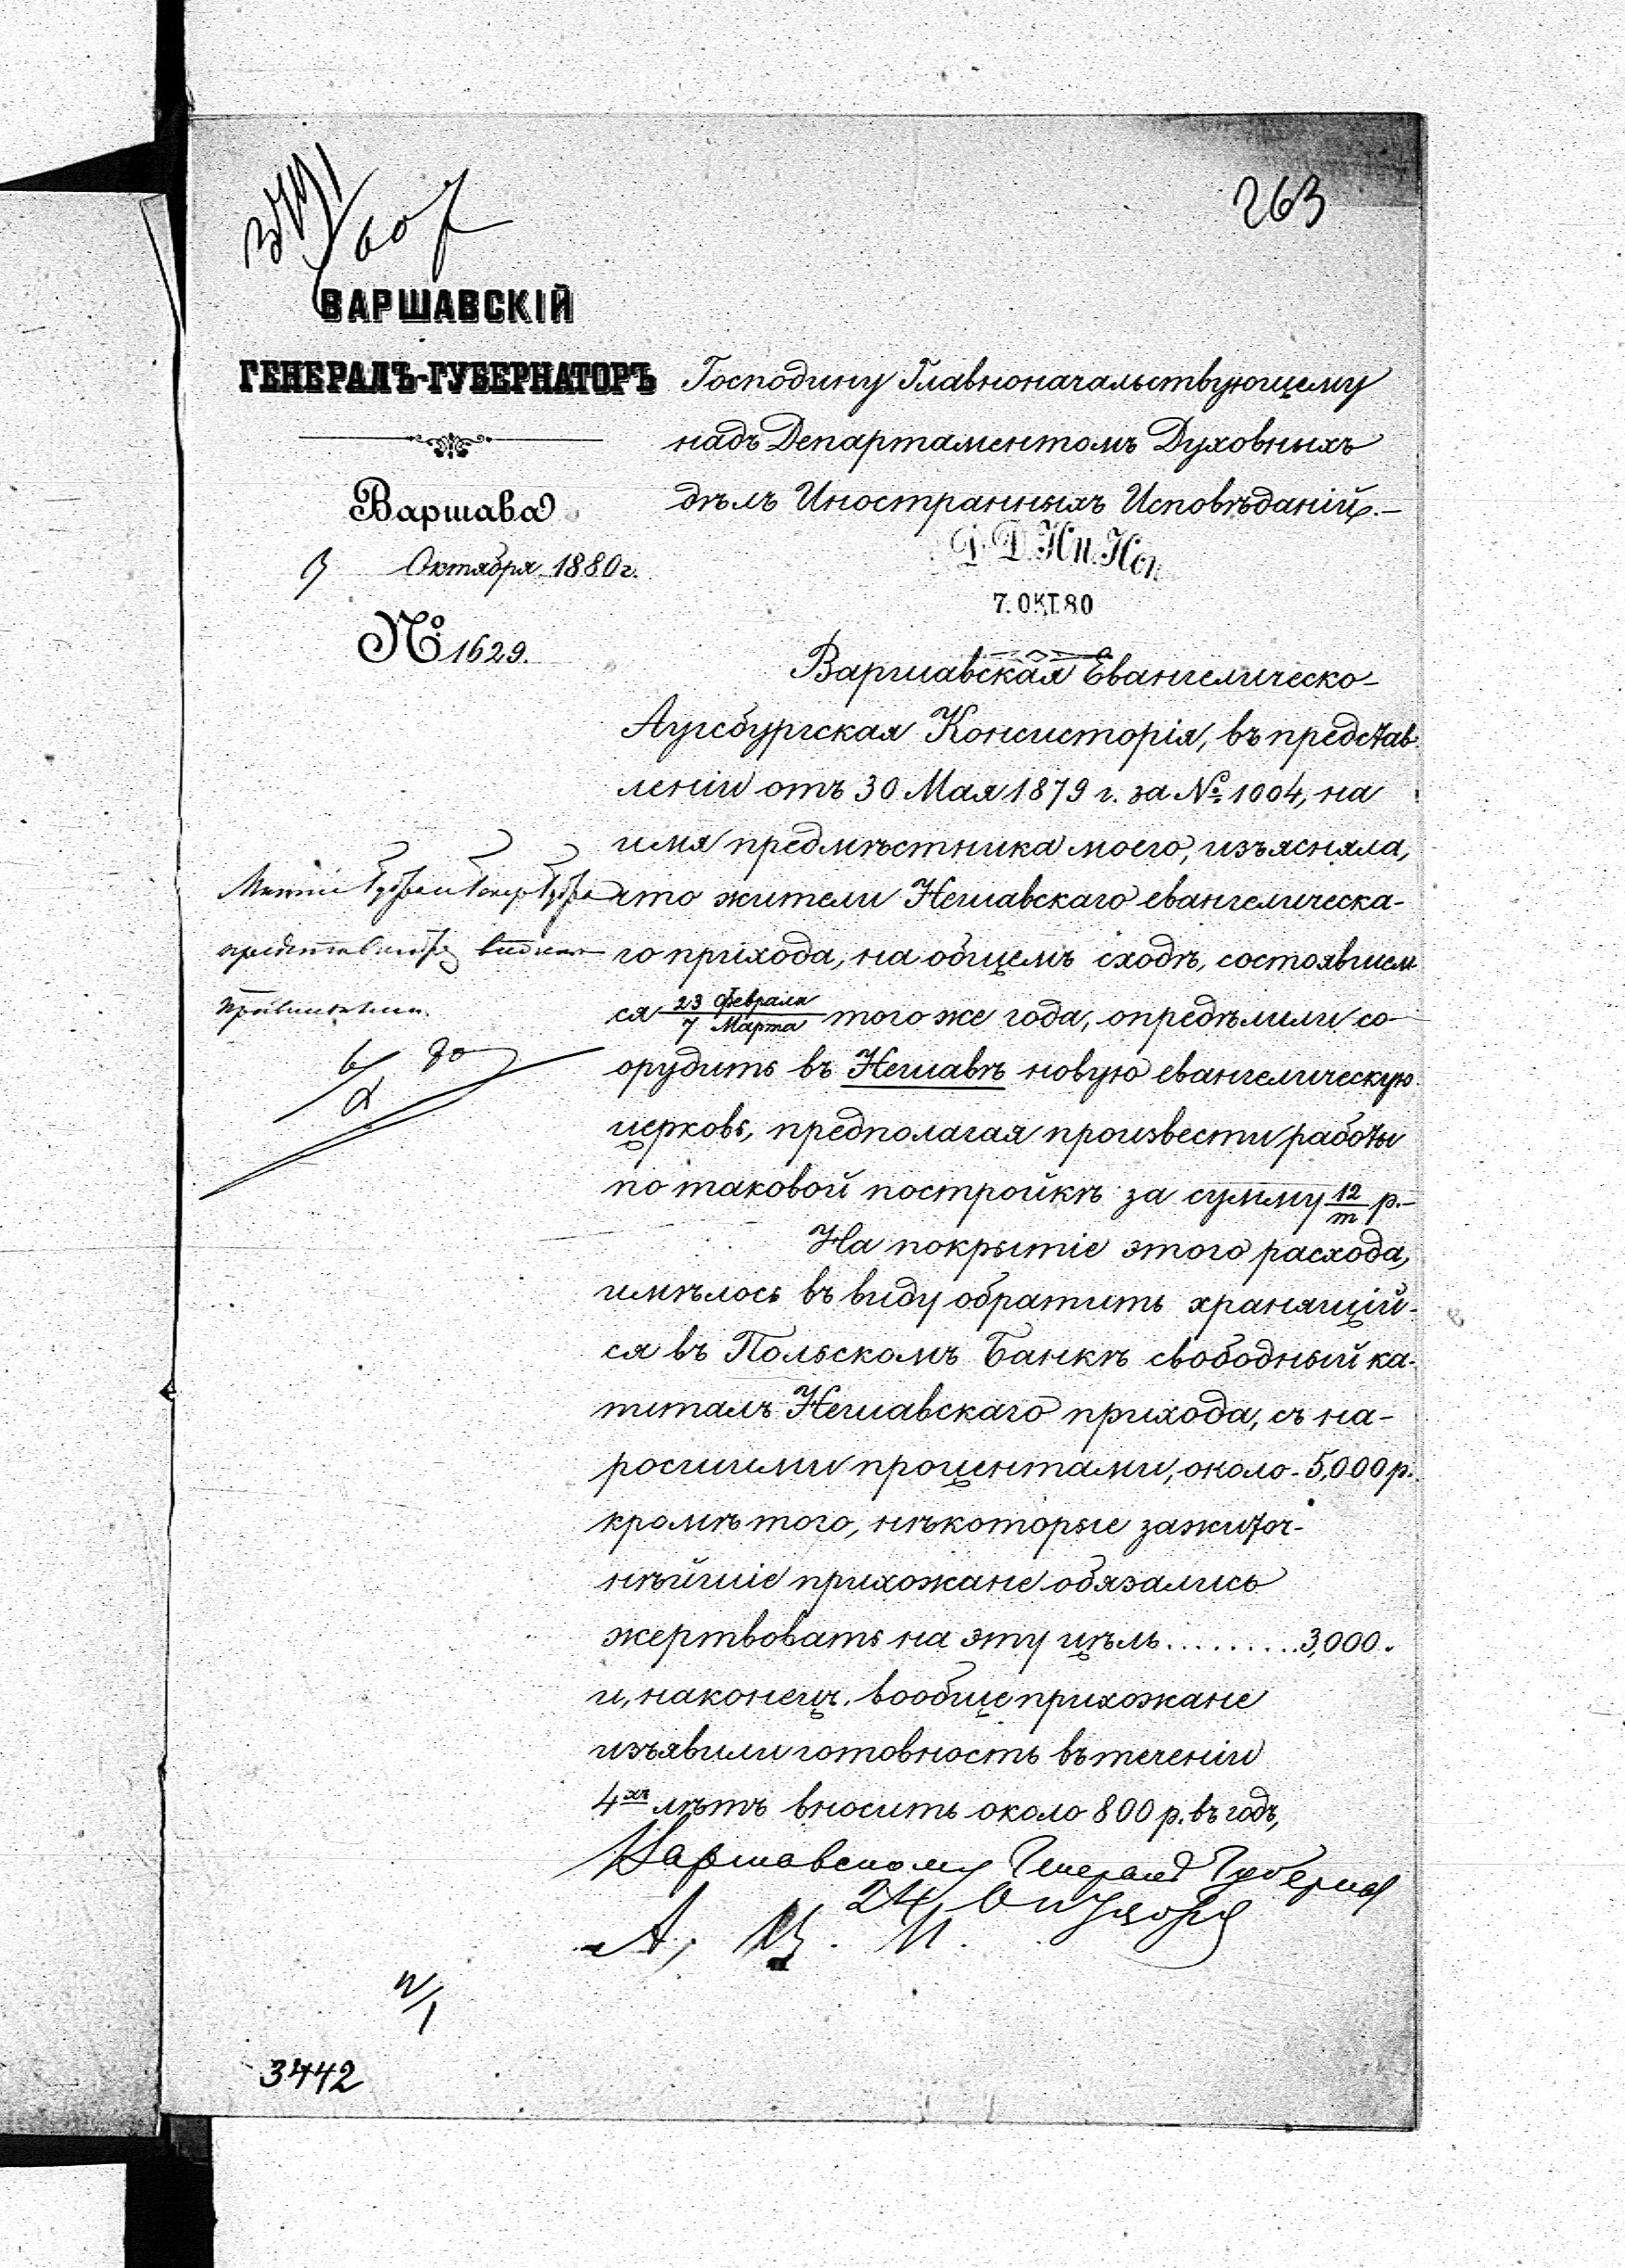 263
ВАРШАВСКІЙ
ГЕНЕРАЛЪ-ГУБЕРНАТОРЪ
Варшава
Октября 1880 г.
№ 1629.
Господину Главноначальствующему
надъ Департаментомъ Духовныхъ
дѣлъ Иностранныхъ Исповѣданій.—
Д. Д. Ин. Исп.
7. ОКТ. 80
Варшавская Евангелическо-
Аугсбургская Консисторія, въ представ-
леніи отъ 30 Мая 1879 г. за № 1004, на
имя предмѣстника моего, изъясняла,
что жители Нешавскаго евангелическа-
го прихода, на общемъ сходѣ, состоявшем
ся 23 Февраля / 7 Марта того же года, опредѣлили со-
орудить въ Нешавѣ новую евангелическую
церковь, предполагая произвести работы
по таковой постройкѣ за сумму 12/т р.—
На покрытіе этого расхода,
имѣлось въ виду обратить хранящій-
ся въ Польскомъ Банкѣ свободный ка-
питалъ Нешавскаго прихода, съ на-
росшими процентами, около - 5,000 р.
кромѣ того, нѣкоторые зажиточ-
нѣйшіе прихожане обязались
жертвовать на эту цѣль.........3,000.
и, наконецъ, вообще прихожане
изъявили готовность въ теченіи
4хъ лѣтъ вносить около 800 р. въ годъ,
Варшавскому Генералъ Губерна
24 Октября
3442